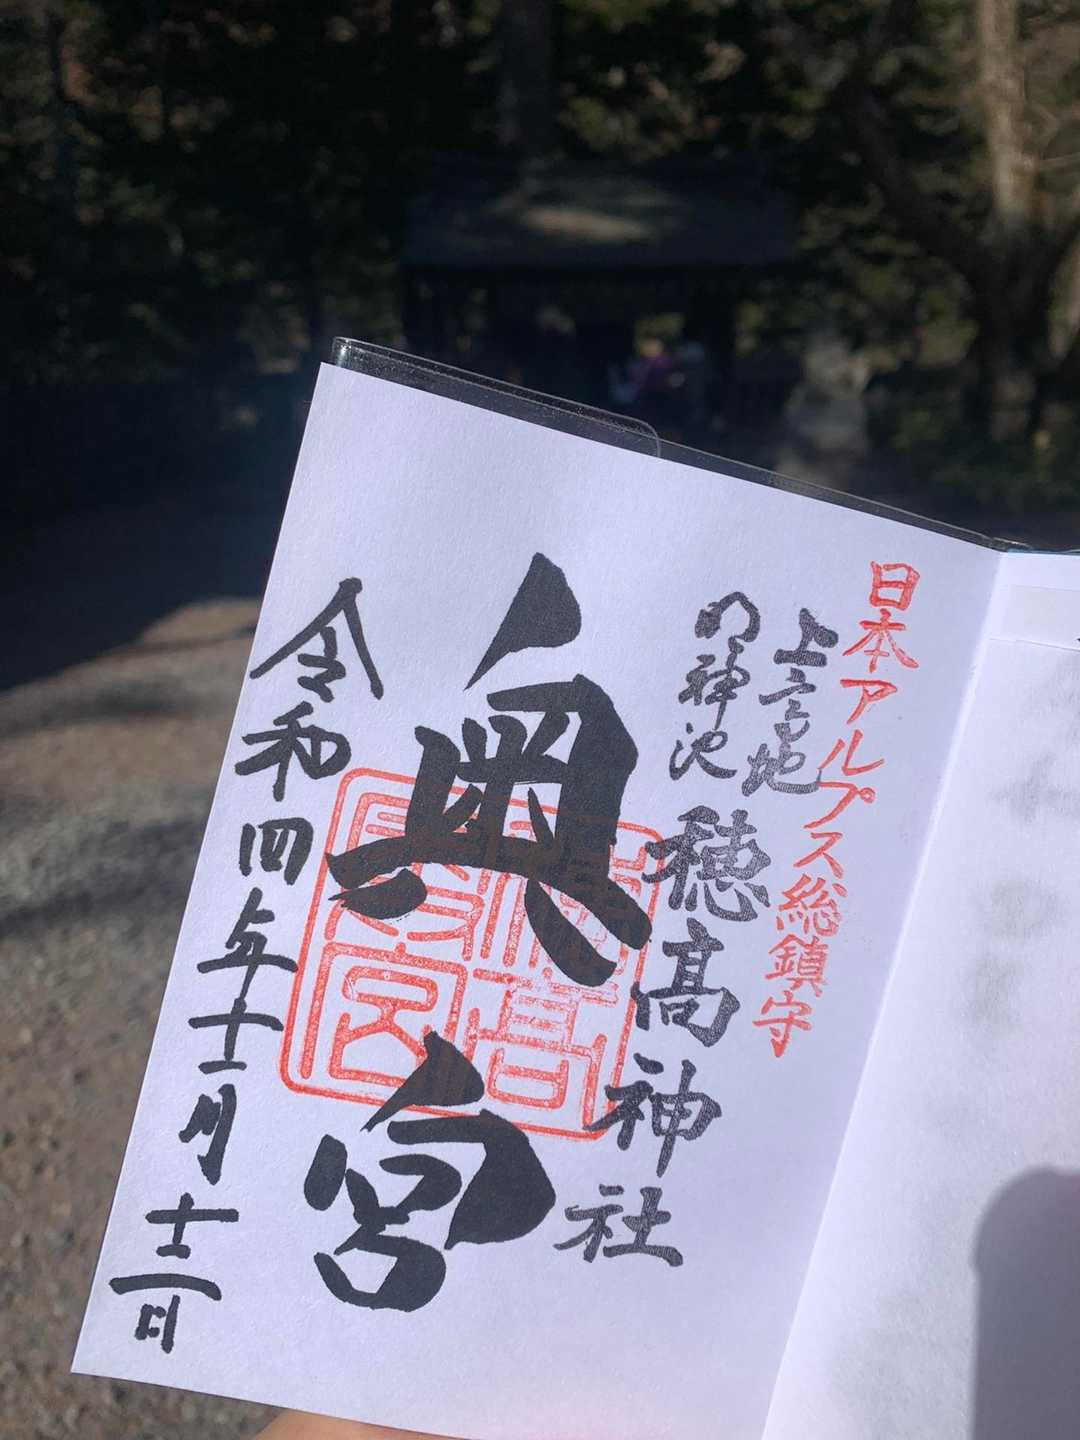 日本アルプス総鎮守
上高地
明神池
穂高神社
奥宮
令和四年十一月十二日